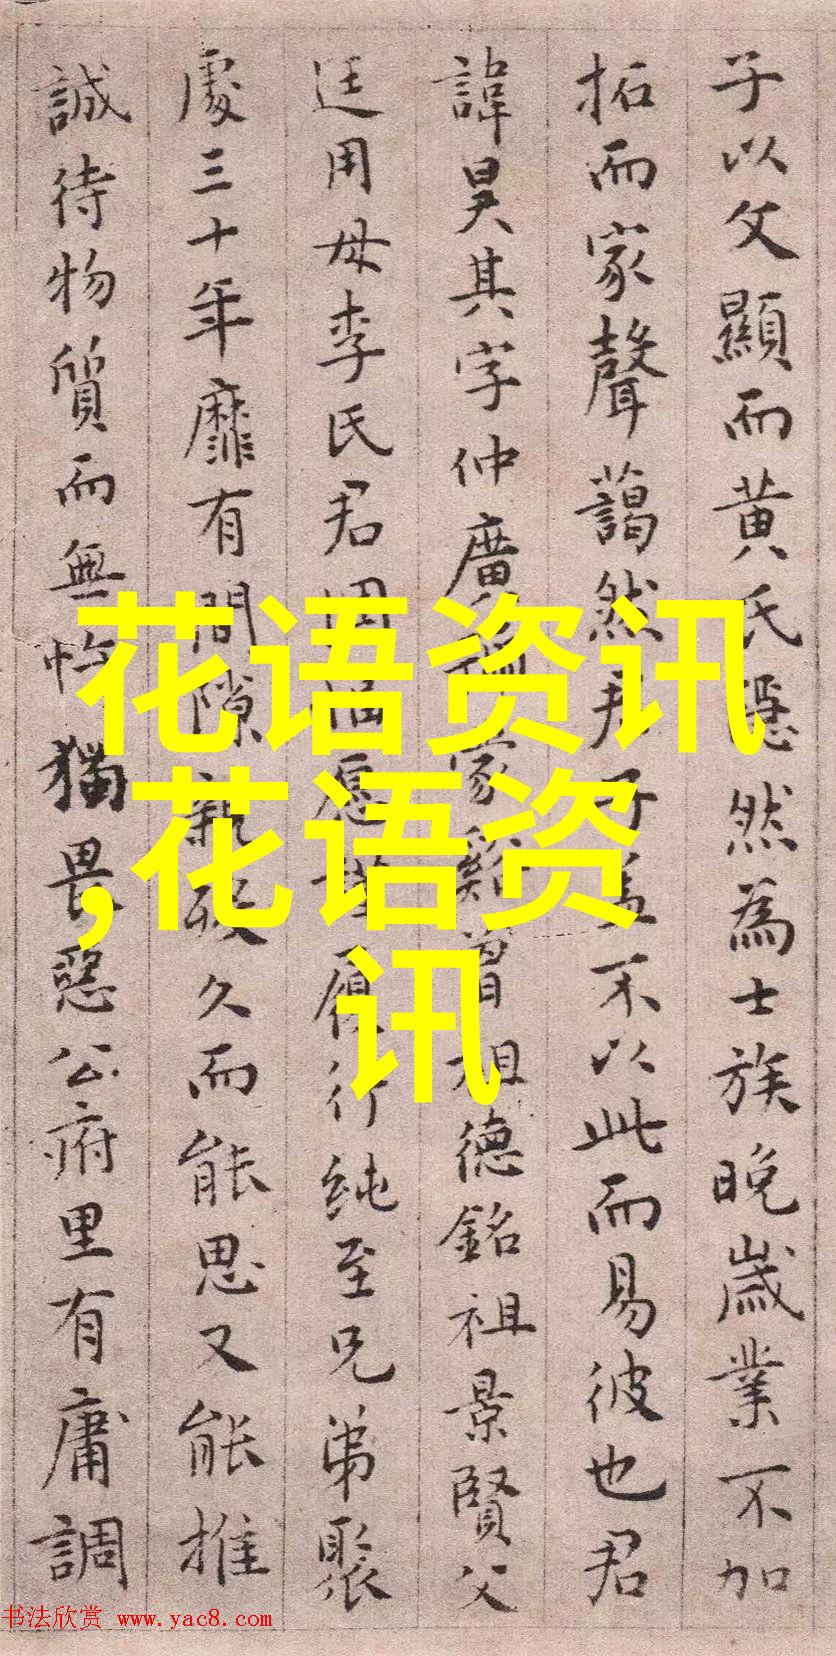 子以父顯而黄氏隱然為士族晚歲業不加
拓而家聲藹然君子盖不以此而易彼也君
諱昊其字仲廣家谿曽祖德銘祖景賢父
廷用母李氏君履行純至兄弟聚
處三十年靡有間隙親歿久而能思又能推
誠待物質而無忤獨畏惡公府里有庸調
花语资讯
,花语资
讯
书法欣赏 www.yac8.com